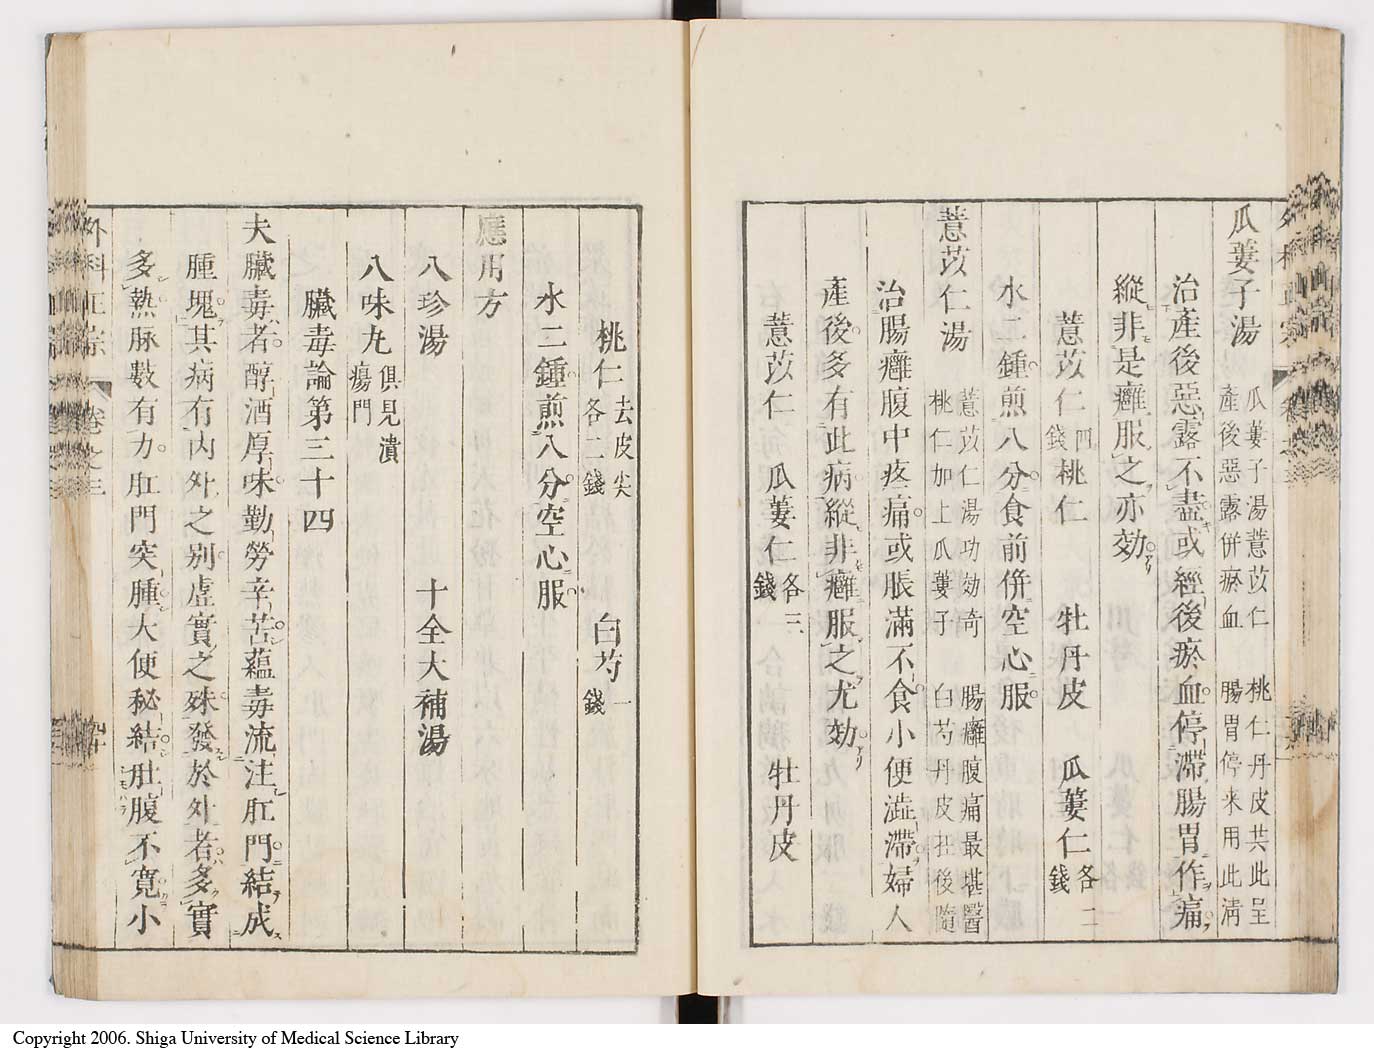 瓜蔞子湯 瓜蔞子湯薏苡仁 桃仁丹皮共此呈 產後惡露併瘀血 腸胃停来用此淸
治產後惡露不盡或經後瘀血停滯腸胃作痛
縱非是癰服之亦効
薏苡仁四錢 桃仁 牡丹皮 瓜蔞仁各二錢
水二鍾煎八分食前併空心服
薏苡仁湯 薏苡仁湯功効奇 腸癰腹痛最堪醫 桃仁加上瓜蔞子 白芍丹皮扭後隨
治腸癰腹中疼痛或脹滿不食小便澁滯婦人
產後多有此病縱非癰服之尤効
薏苡仁 瓜蔞仁各三錢 牡丹皮
桃仁去皮尖各二錢 白芍一錢
水二鍾煎八分空心服
應用方
八珍湯 十全大補湯
八味丸俱見潰瘍門
臟毒論第三十四
夫臟毒者醇酒厚味勤勞辛苦蘊毒流注肛門結成
腫塊其病有內外之別虛實之殊發於外者多實
多熱脉數有力肛門突腫大便秘結肚腹不寬小
外科正宗 卷之三 四十
Copyright 2006. Shiga University of Medical Science Library